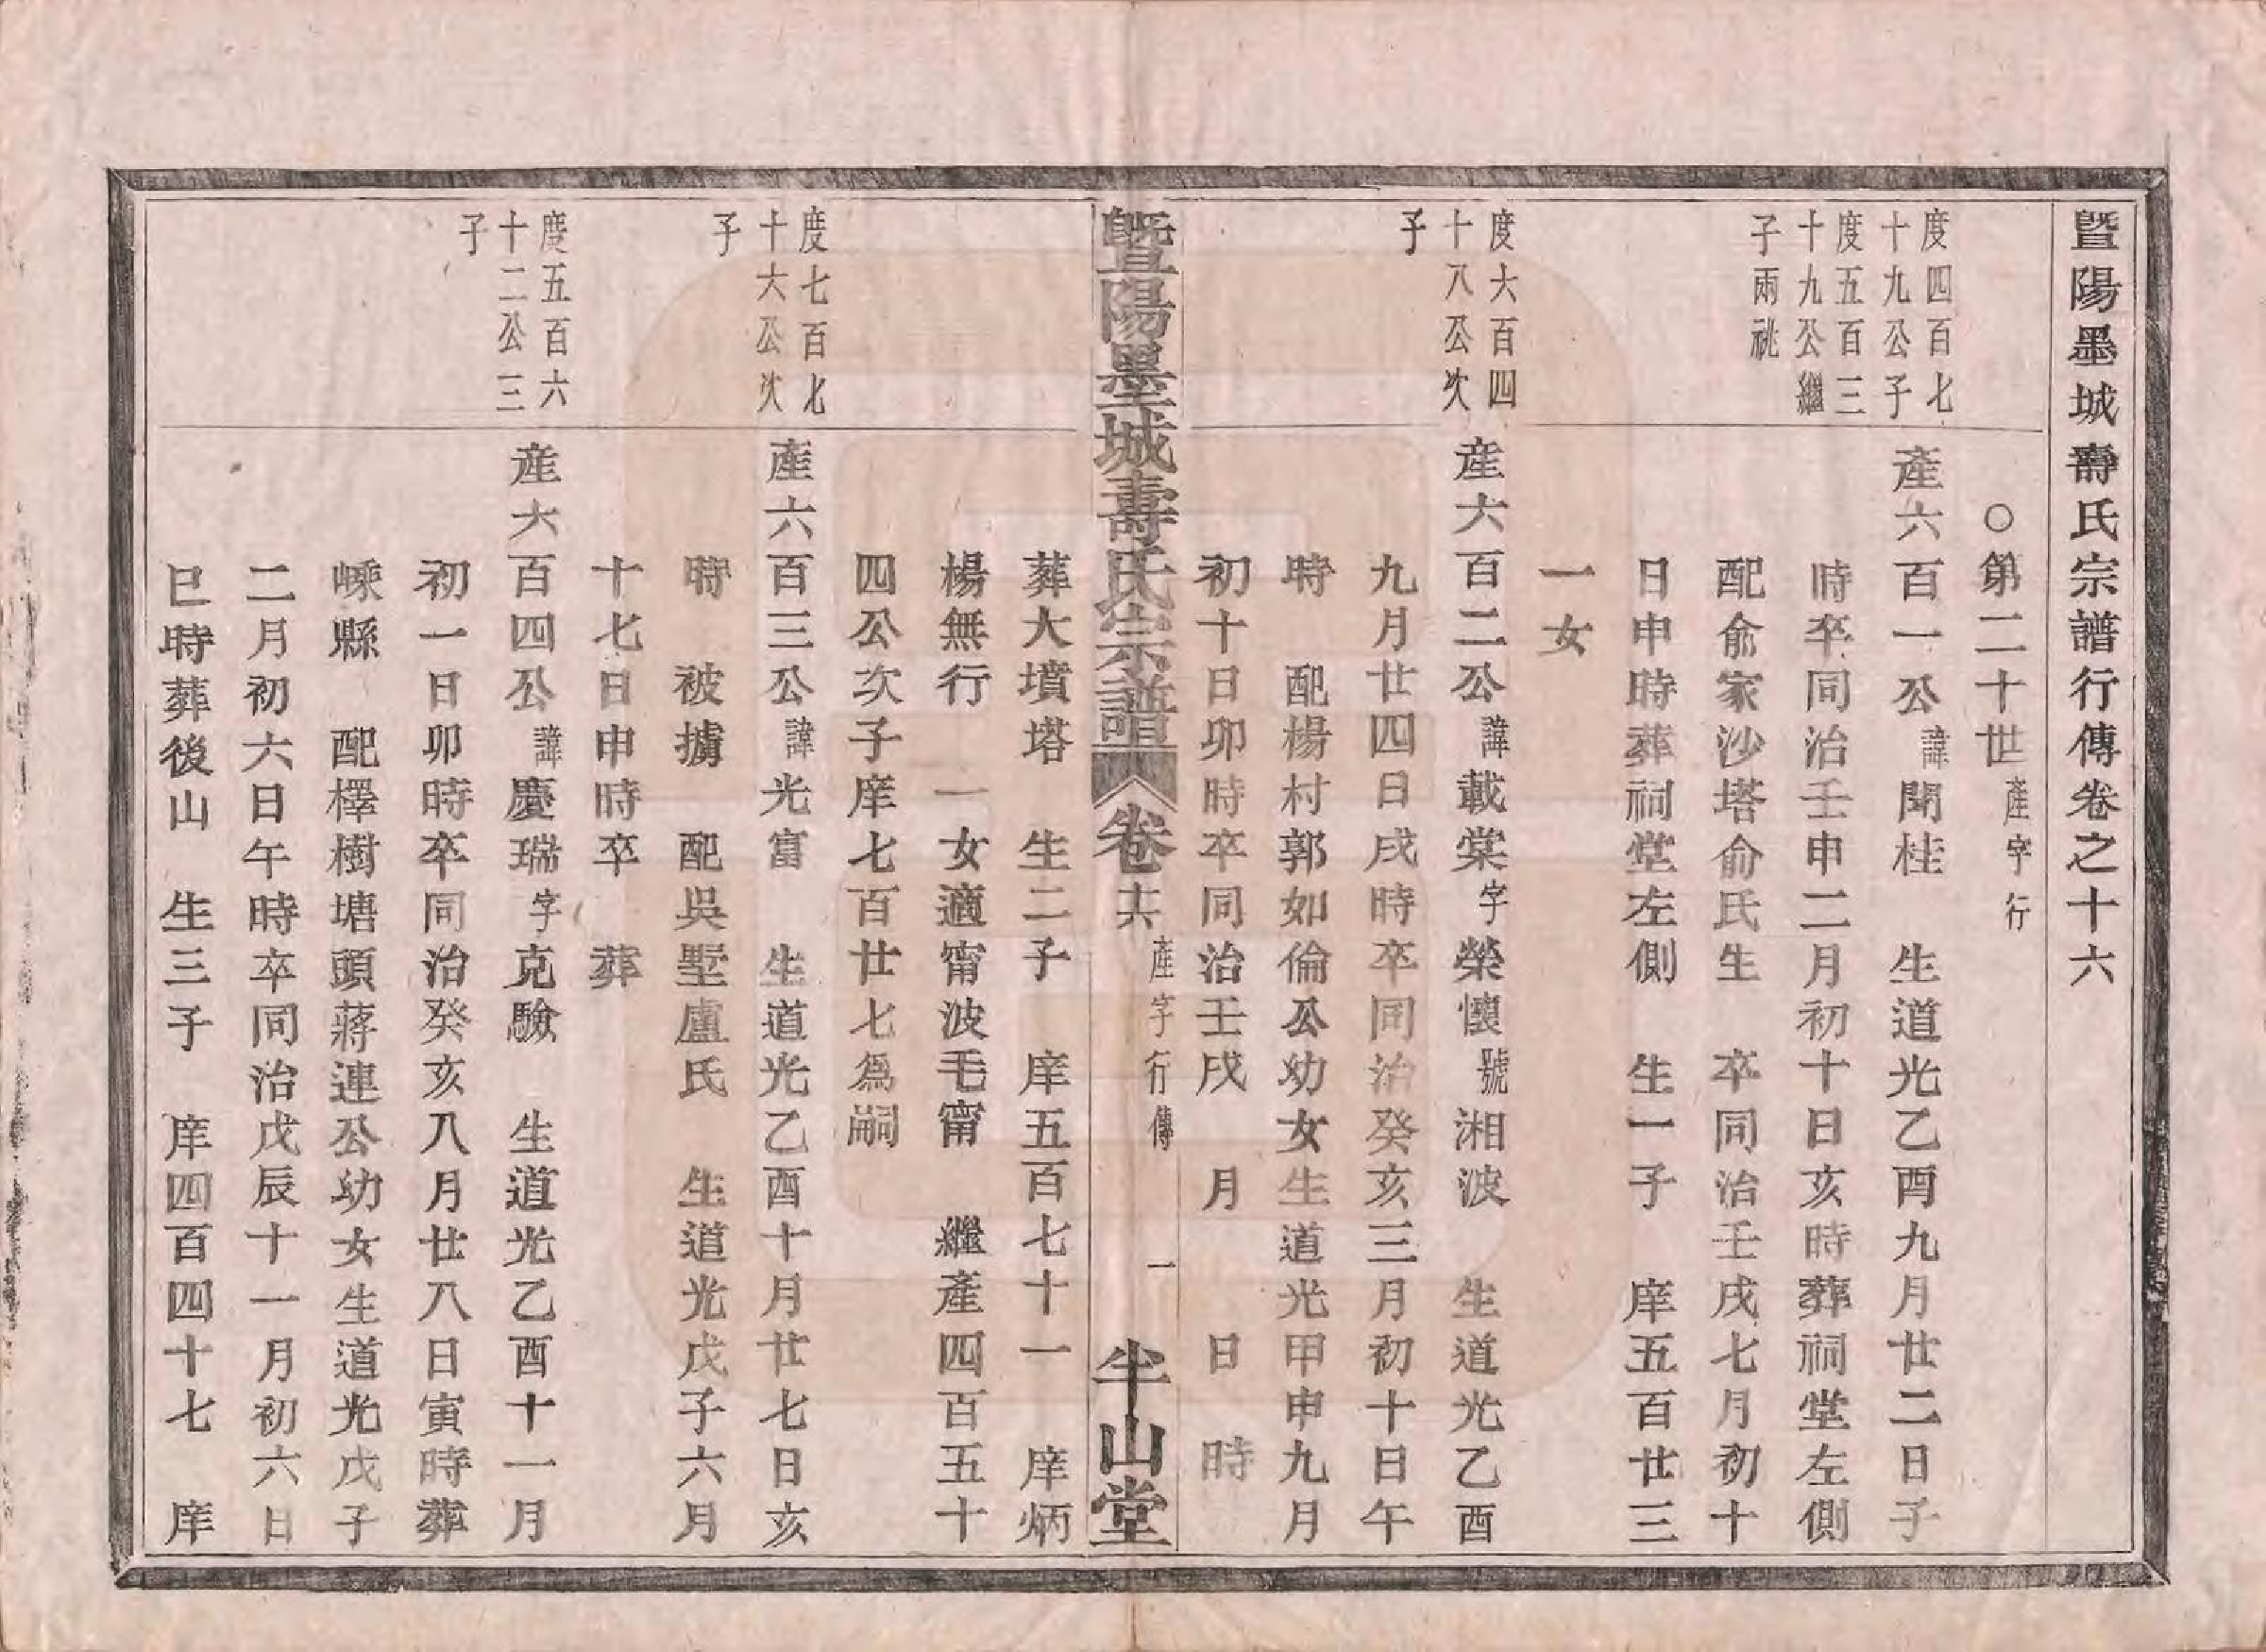 暨陽墨城壽氏宗譜行傳卷之十六
〇第二十世產字行
度四百七
十九公子
度五百三
十九公繼
子兩祧
產六百一公諱聞桂 生道光乙酉九月廿二日子
時卒同治壬申二月初十日亥時葬祠堂左側
配俞家沙塔俞氏生 卒同治壬戌七月初十
日申時葬祠堂左側 生一子 庠五百廿三
一女
度六百四
十八公次
子
產六百二公諱載棠字榮懷號湘波 生道光乙酉
九月廿四日戌時卒同治癸亥三月初十日午
時 配楊村郭如倫公幼女生道光甲申九月
初十日卯時卒同治壬戌 月 日 時
暨陽墨城壽氏宗譜 卷十六 產字行傳 一 半山堂
葬大墳塔 生二子 庠五百七十一 庠炳
楊無行 一女適甯波毛甯 繼產四百五十
四公次子庠七百廿七為嗣
度七百七
十六公次
子
產六百三公諱光富 生道光乙酉十月廿七日亥
時 被擄 配吳墅盧氏 生道光戊子六月
十七日申時卒 葬
度五百六
十二公三
子
產六百四公諱慶瑞字克驗 生道光乙酉十一月
初一日卯時卒同治癸亥八月廿八日寅時葬
嵊縣 配檡樹塘頭蔣連公幼女生道光戊子
二月初六日午時卒同治戊辰十一月初六日
巳時葬後山 生三子 庠四百四十七 庠